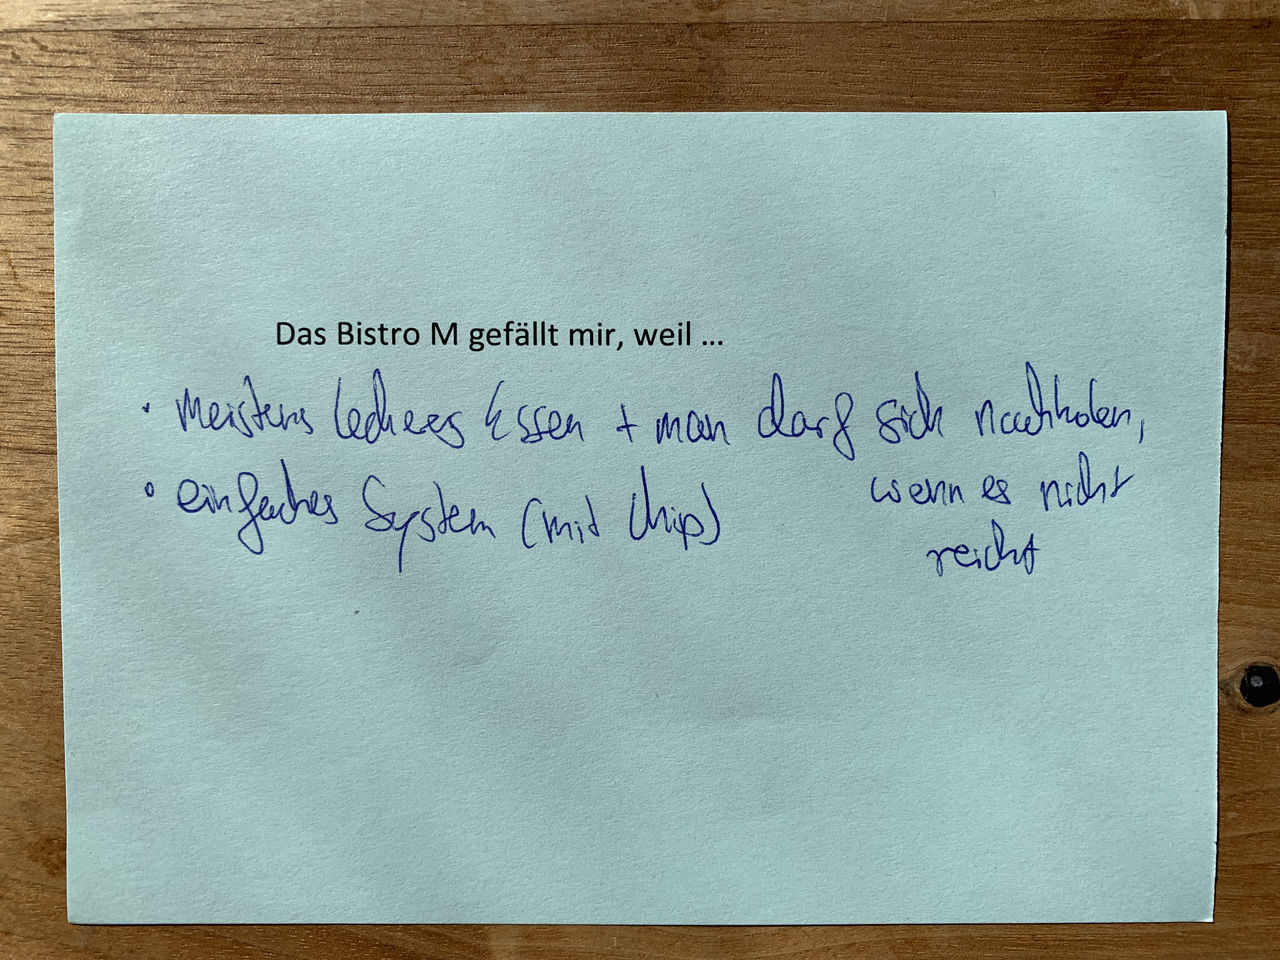 Das Bistro M gefällt mir, weil ...
• meistens leckeres Essen + man darf sich nachholen,
wenn es nicht
reicht
• einfaches System (mit Chip)